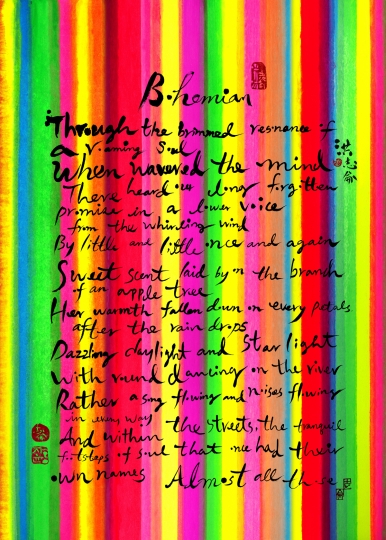 Bohemian
Through the brimmed resonance of
a roaming soul
When wavered the mind
There heard our long forgotten
promise in a lower voice
from the whirling wind
By little and little once and again
Sweet scent laid by on the branch
of an apple tree
Her warmth fallen down on every petals
after the rain drops
Dazzling daylight and starlight
with round dancing on the river
Rather a song flowing and noises flowing
in every way
And within the streets, the tranquil
footsteps of soul that once had their
own names Almost all these